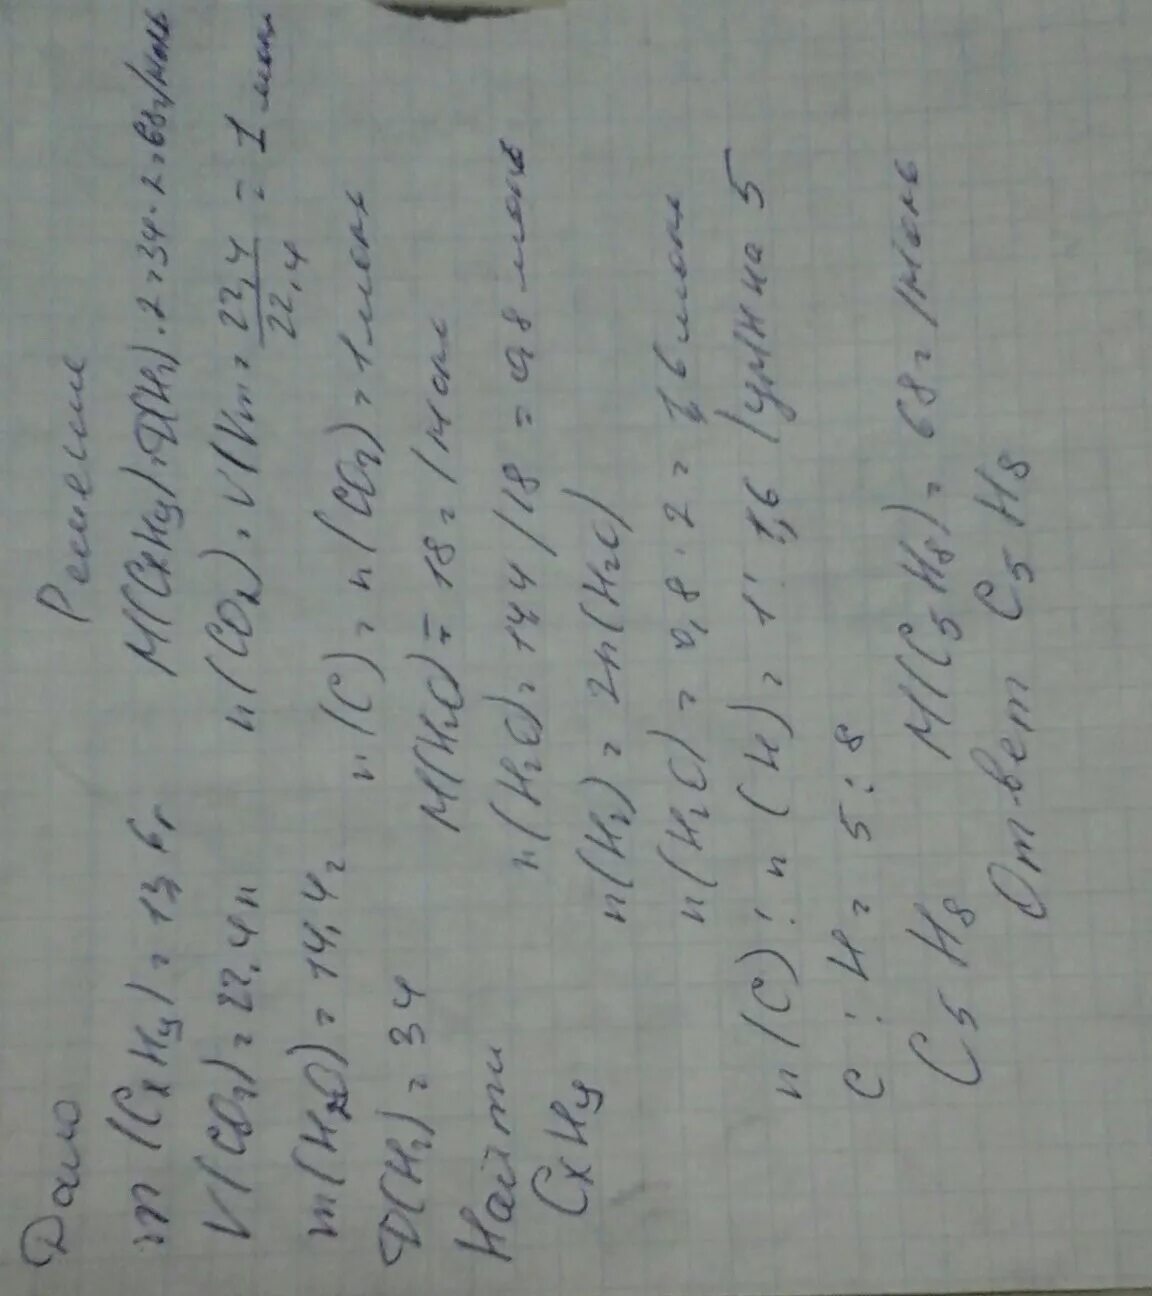 Дано
m(CxHy) = 13,6г
V(CO2) = 22,4л
m(H2O) = 14,4г
D(H2) = 34
Найти
CxHy
Решение
M(CxHy) = D(H2)·2=34·2=68г/моль
n(CO2) = V/Vm = 22,4/22,4 = 1 моль
n(C) = n(CO2) = 1 моль
M(H2O) = 18г/моль
n(H2O) = 14,4/18 = 0,8 моль
n(H2) = 2n(H2O)
n(H2O) = 0,8·2 = 1,6 моль
n(C) : n(H) = 1 : 1,6 /умн на 5
C : H = 5 : 8
C5H8 M(C5H8) = 68г/моль
Ответ C5H8